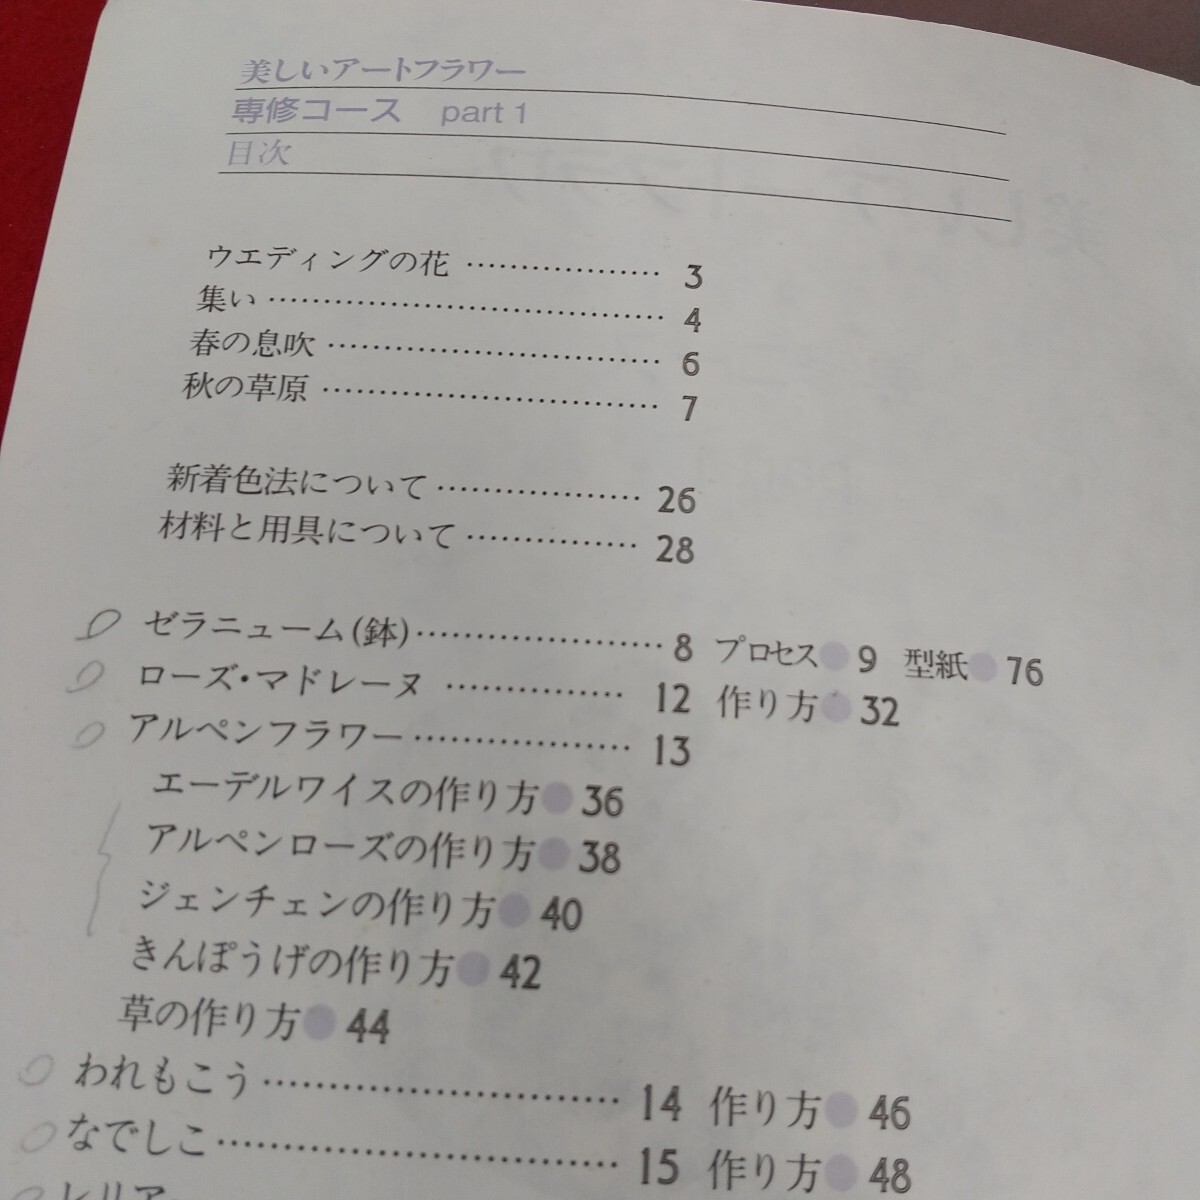 美しいアートフラワー
専修コース part 1
目次
ウエディングの花 ………………… 3
集い ………………………………… 4
春の息吹 …………………………… 6
秋の草原 …………………………… 7
新着色法について ………………… 26
材料と用具について ……………… 28
ゼラニューム(鉢) …………………… 8 プロセス●9 型紙●76
ローズ・マドレーヌ ……………… 12 作り方●32
アルペンフラワー ………………… 13
エーデルワイスの作り方●36
アルペンローズの作り方●38
ジェンチェンの作り方●40
きんぽうげの作り方●42
草の作り方●44
われもこう ………………………… 14 作り方●46
なでしこ …………………………… 15 作り方●48